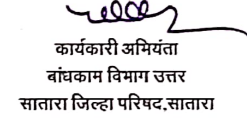 कार्यकारी अभियंता
बांधकाम विभाग उत्तर
सातारा जिल्हा परिषद,सातारा